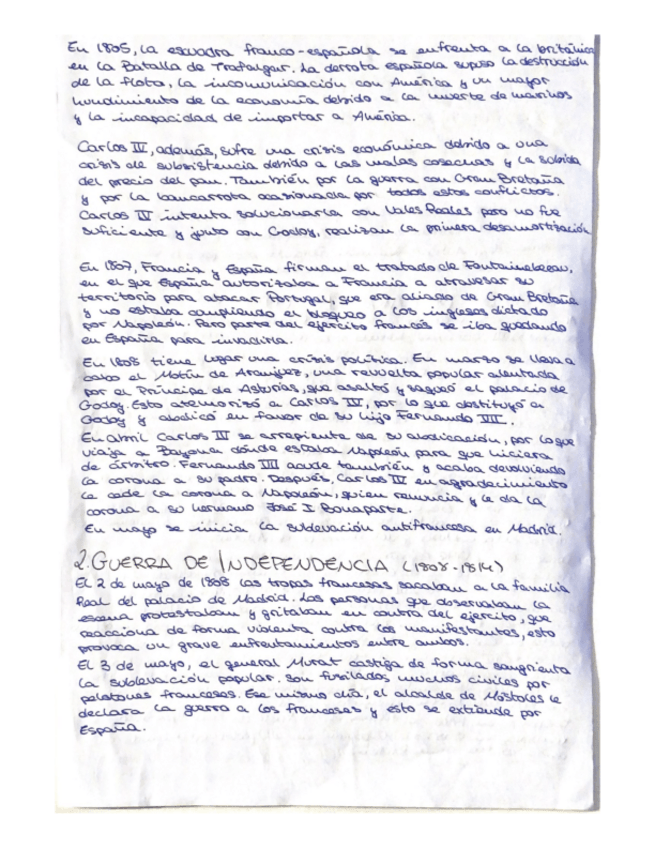 En 1805, la escuadra franco-española se enfrenta a la británica
en la Batalla de Trafalgar. La derrota española supuso la destrucción
de la flota, la incomunicación con América y un mayor
hundimiento de la economía debido a la muerte de marinos
y la incapacidad de importar a América.
Carlos IV, además, sufre una crisis económica debido a una
crisis de subsistencia debido a las malas cosechas y la subida
del precio del pan. También por la guerra con Gran Bretaña
y por la bancarrota ocasionada por todos estos conflictos.
Carlos IV intenta solucionarla con Vales Reales pero no fue
suficiente y junto con Godoy, realizan la primera desamortización
En 1807, Francia y España firman el tratado de Fontainebleau,
en el que España autorizaba a Francia a atravesar su
territorio para atacar Portugal, que era aliado de Gran Bretaña
y no estaba cumpliendo el bloqueo a los ingleses dictado
por Napoleón. Pero parte del ejército francés se iba quedando
en España para invadirla.
En 1808 tiene lugar una crisis política. En marzo se lleva a
cabo el Motín de Aranjuez, una revuelta popular alentada
por el Príncipe de Asturias, que asaltó y saqueó el palacio de
Godoy. Esto atemorizó a Carlos IV, por lo que destituyó a
Godoy y abdicó en favor de su hijo Fernando VII.
En abril Carlos IV se arrepiente de su abdicación, por lo que
viaja a Bayona donde estaba Napoleón para que hiciera
de árbitro. Fernando VII acude también y acaba devolviendo
la corona a su padre. Después, Carlos IV en agradecimiento
le cede la corona a Napoleón, quien renuncia y le da la
corona a su hermano José I Bonaparte.
En mayo se inicia la sublevación antifrancesa en Madrid.
2. GUERRA DE INDEPENDENCIA (1808-1814)
El 2 de mayo de 1808 las tropas francesas sacaban a la familia
Real del palacio de Madrid. Las personas que observaban la
escena protestaban y gritaban en contra del ejército, que
reacciona de forma violenta contra los manifestantes, esto
provoca un grave enfrentamientos entre ambos.
El 3 de mayo, el general Murat castiga de forma sangrienta
la sublevación popular. Son fusilados muchos civiles por
pelotones franceses. Ese mismo día, el alcalde de Móstoles le
declara la guerra a los franceses y esto se extiende por
España.